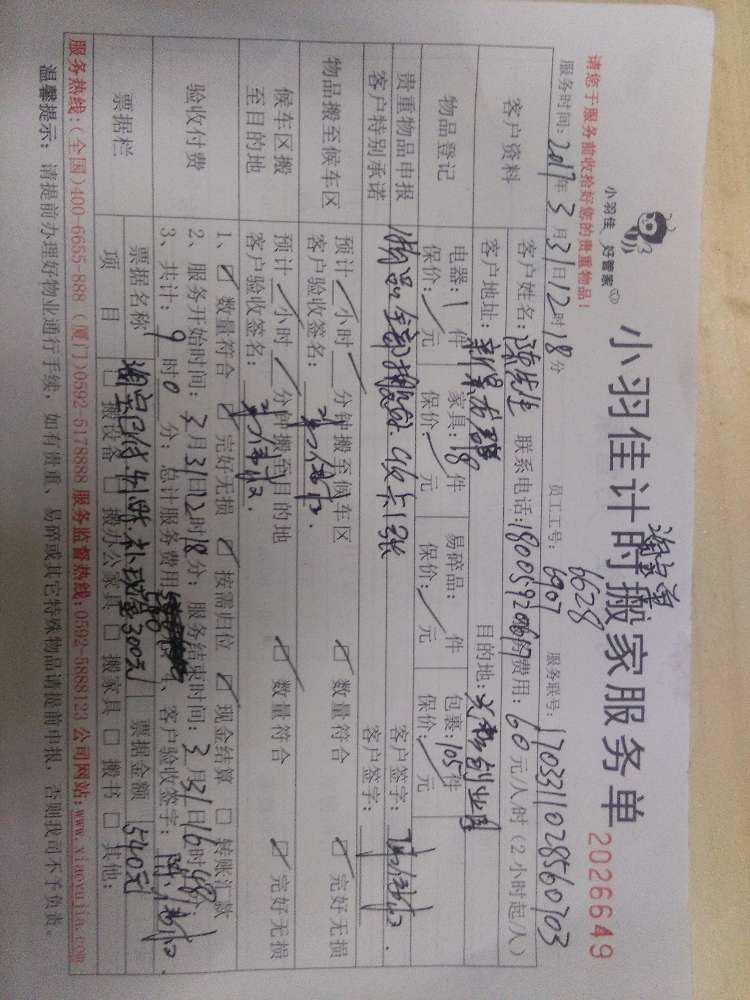 小羽佳 好管家
小羽佳计时搬家服务单
2026649
淘宝单
请您于服务前收拾好您的贵重物品!
6628
服务时间:2017年3月31日12时18分 员工工号:6907 服务联号:1703311028560703
客户资料
客户姓名: 先生 联系电话: 费用:60元/人/时(2小时起/人)
客户地址: 目的地: 创业园
物品登记
电器:1件 家具:18件 易碎品: 件 包裹:105件
保价: 元 保价: 元 保价: 元 保价: 元
贵重物品申报
客户特别承诺
物品全部搬完 客户签字:
客户签字:
物品搬至候车区
预计 小时 分钟搬至候车区 数量符合 完好无损
客户验收签名:
候车区搬至目的地
预计 小时 分钟搬至目的地 数量符合 完好无损
客户验收签名:
验收付费
1、 数量符合 完好无损 按需归位 现金结算 转账汇款
2、服务开始时间:3月31日12时18分;服务结束时间:3月31日16时48
3、共计:9时0分;总计服务费用 540 4、客户验收签字:
票据栏
票据名称 淘宝已付 补现金300元 票据金额 540元
项目 搬设备 搬办公家具 搬家具 搬书 其他:
服务热线:(全国)400-6655-888 (厦门)0592-5178888 服务监督热线:0592-5888123 公司网站:www.xiaoyujia.com
温馨提示:请提前办理好物业通行手续,如有贵重、易碎或其它特殊物品请提前申报,否则我司不予负责。